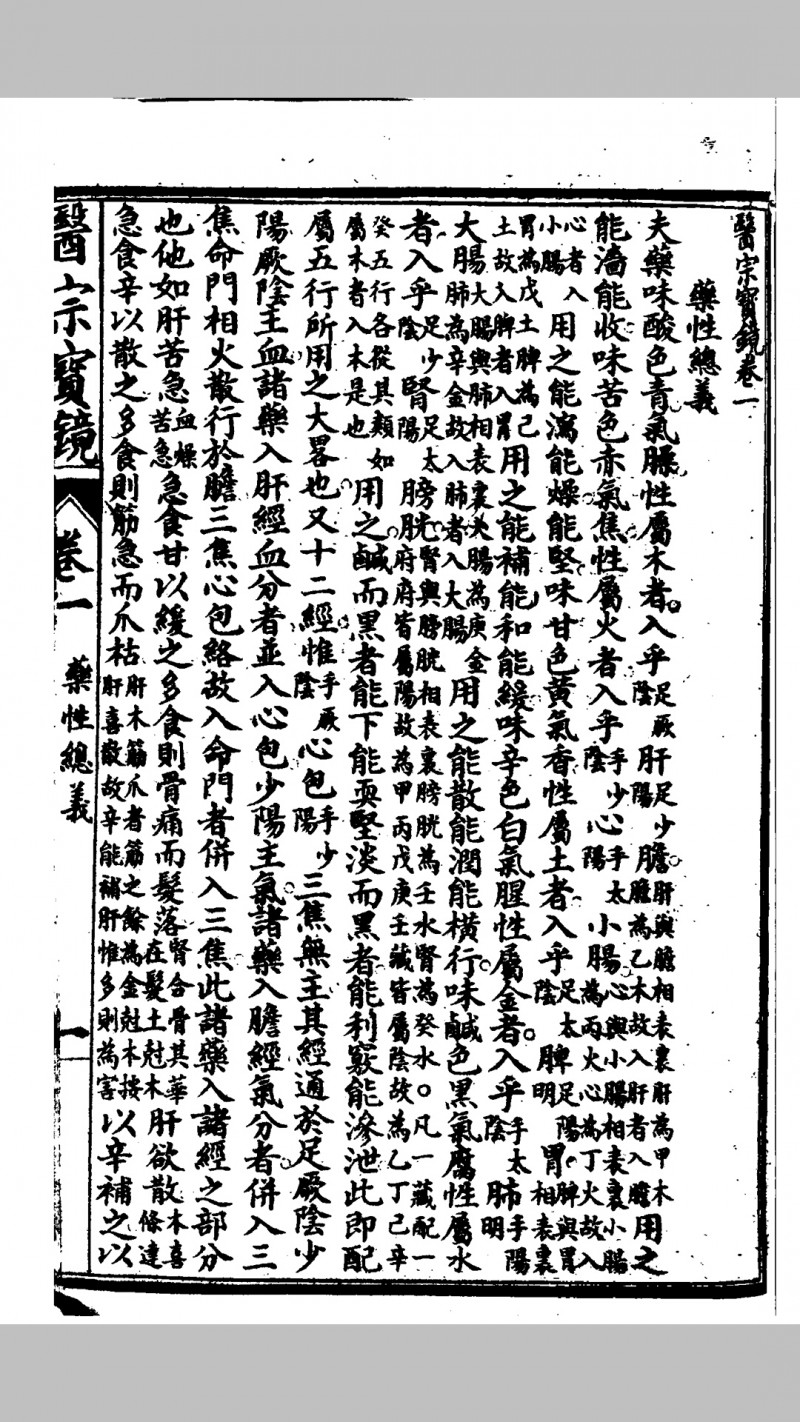 醫宗寶鏡卷一
藥性總義
夫藥味酸色青氣臊性屬木者入乎足厥陰肝足少陽膽肝與膽相表裏肝為甲木膽為乙木故入肝者入膽用之
能濇能收味苦色赤氣焦性屬火者入乎手少陰心手太陽小腸心與小腸相表裏小腸為丙火心為丁火故入
心者入小腸用之能瀉能燥能堅味甘色黃氣香性屬土者入乎足太陰脾足陽明胃脾與胃相表裏
胃為戊土脾為己土故入脾者入胃用之能補能和能緩味辛色白氣腥性屬金者入乎手太陰肺手陽明
大腸大腸與肺相表裏大腸為庚金肺為辛金故入肺者入大腸用之能散能潤能橫行味鹹色黑氣腐性屬水
者入乎足少陰腎足太陽膀胱腎與膀胱相表裏膀胱為壬水腎為癸水凡一藏配一府府皆屬陽故為甲丙戊庚壬藏皆屬陰故為乙丁己辛
癸五行各從其類如屬木者入木是也用之鹹而黑者能下能耎堅淡而黑者能利竅能滲泄此即配
屬五行所用之大畧也又十二經惟手厥陰心包手少陽三焦無主其經通於足厥陰少
陽厥陰主血諸藥入肝經血分者並入心包少陽主氣諸藥入膽經氣分者併入三
焦命門相火散行於膽三焦心包絡故入命門者併入三焦此諸藥入諸經之部分
也他如肝苦急血燥苦急急食甘以緩之多食則骨痛而髮落腎合骨其華在髮土尅木肝欲散木喜條達
急食辛以散之多食則筋急而爪枯肝木筋爪者筋之餘為金尅木按肝喜散故辛能補肝惟多則為害以辛補之以
醫宗寶鏡
卷一
藥性總義
一